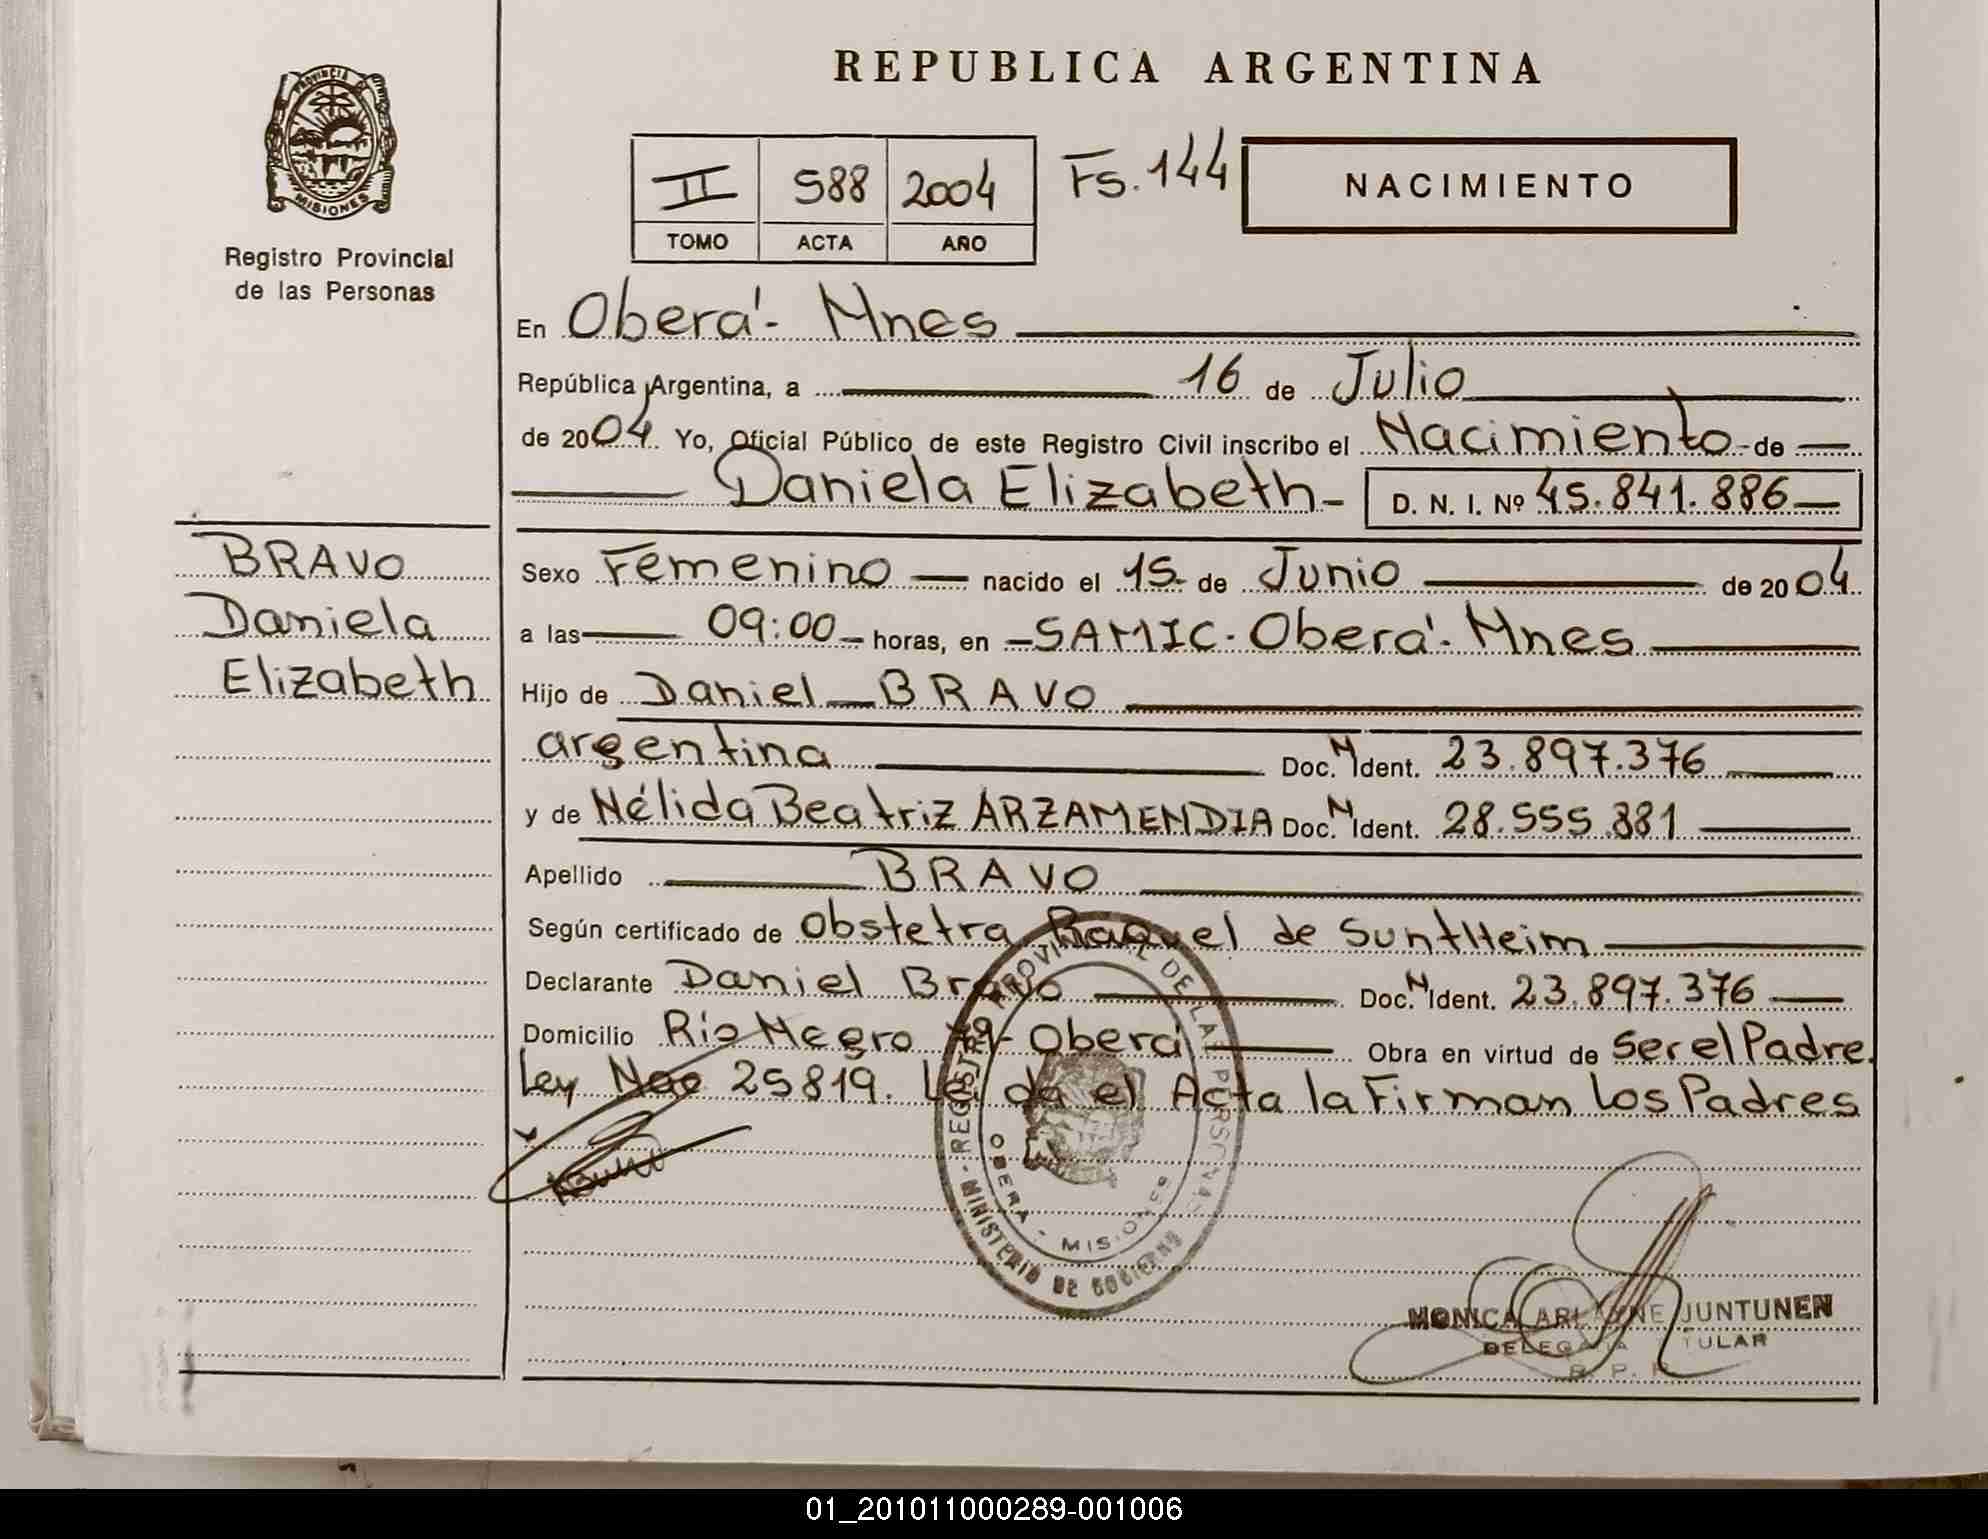 REPUBLICA ARGENTINA
PROVINCIA
MISIONES
Registro Provincial
de las Personas
II 588 2004 Fs. 144 NACIMIENTO
TOMO ACTA AÑO
En Oberá - Mnes
República Argentina, a 16 de Julio
de 2004 Yo, Oficial Público de este Registro Civil inscribo el Nacimiento de
Daniela Elizabeth - D. N. I. Nº 45.841.886
BRAVO
Daniela
Elizabeth
Sexo Femenino nacido el 15 de Junio de 2004
a las 09:00 horas, en SAMIC. Oberá - Mnes
Hijo de Daniel BRAVO
argentina Doc. N Ident. 23.897.376
y de Nélida Beatriz ARZAMENDIA Doc. N Ident. 28.555.881
Apellido BRAVO
Según certificado de Obstetra Raquel de Suntheim
Declarante Daniel Bravo Doc. N Ident. 23.897.376
Domicilio Río Negro 79 - Oberá Obra en virtud de Ser el Padre.
Ley Nac 25819. Leída el Acta la Firman los Padres
REGISTRO PROVINCIAL DE LAS PERSONAS
OBERA - MISIONES
MINISTERIO DE GOBIERNO
MONICA JUNTUNEN
DELEGADA TITULAR
01_201011000289-001006